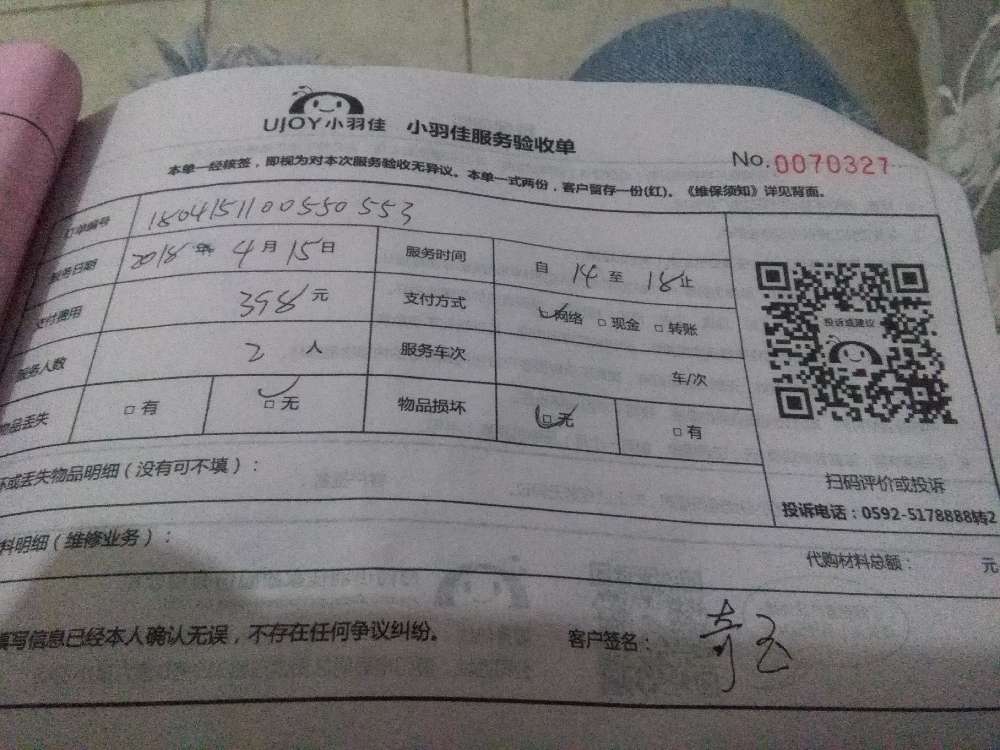 UJOY小羽佳 小羽佳服务验收单
No.0070327
本单一经核签，即视为对本次服务验收无异议。本单一式两份，客户留存一份(红)。《维保须知》详见背面。
订单编号 1804151100550553
服务日期 2018年4月15日 服务时间 自14至18止
支付费用 398元 支付方式 □网络 □现金 □转账
服务人数 2人 服务车次 车/次
物品丢失 □有 □无 物品损坏 □无 □有
投诉或建议
扫码评价或投诉
投诉电话：0592-5178888转2
坏或丢失物品明细（没有可不填）：
料明细（维修业务）： 代购材料总额： 元
填写信息已经本人确认无误，不存在任何争议纠纷。 客户签名：